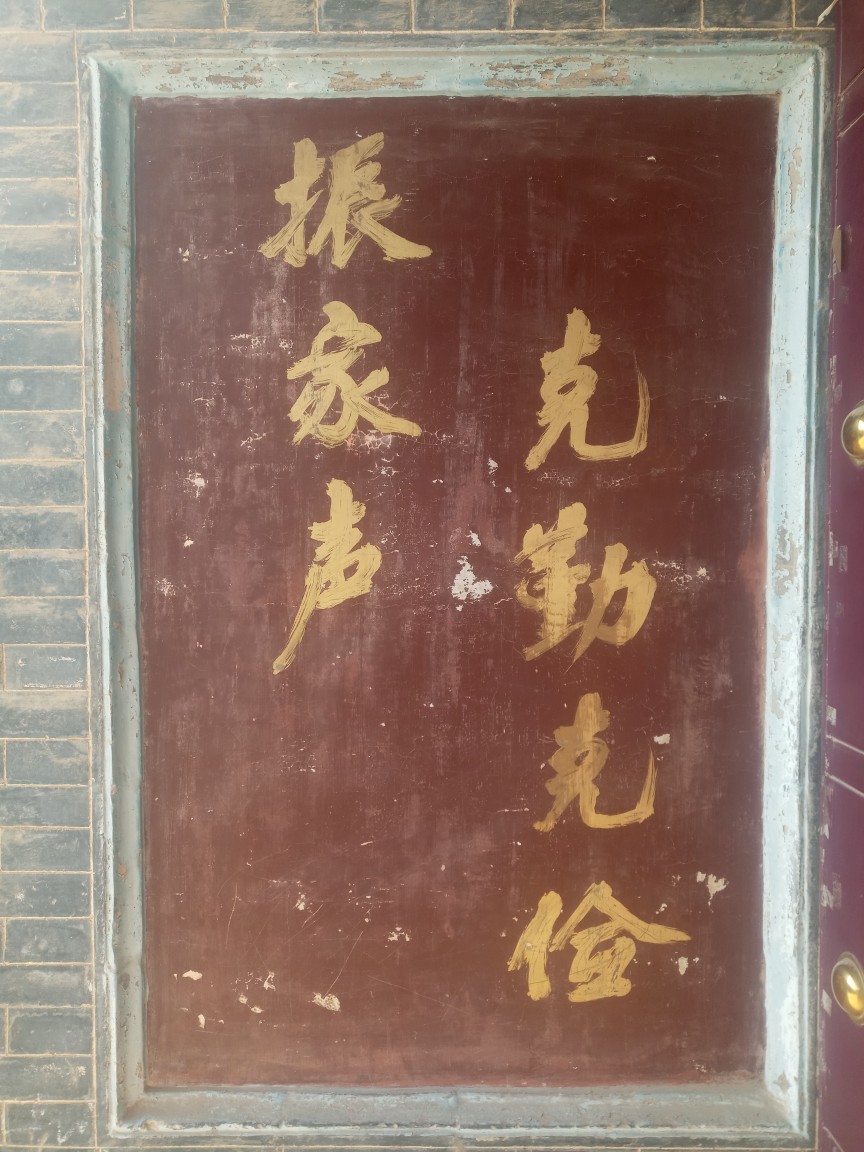 克勤克俭
振家声